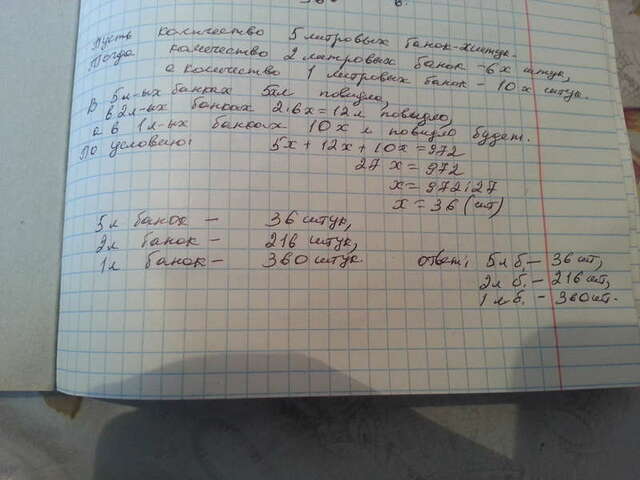 Пусть количество 5 литровых банок - x штук.
Тогда количество 2 литровых банок - 6x штук,
а количество 1 литровых банок - 10x штук.
В 5л-ых банках 5xл повидло,
в 2л-ых банках 2·6x=12л повидло,
а в 1л-ых банках 10x л повидло будет.
По условию: 5x + 12x + 10x = 972
27 x = 972
x = 972:27
x = 36 (шт)
5л банок - 36 штук,
2л банок - 216 штук,
1л банок - 360 штук.
ответ: 5л б. - 36 шт,
2л б. - 216 шт,
1л б. - 360 шт.